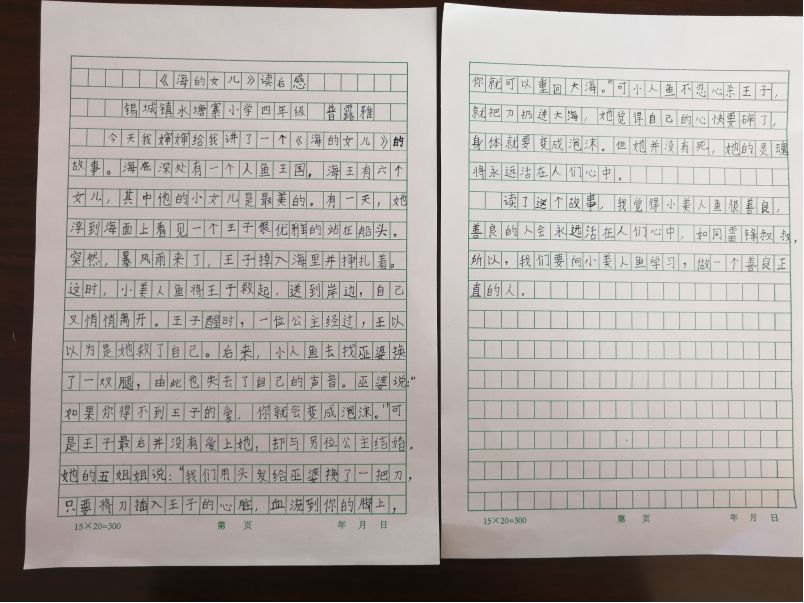 《海的女儿》读后感
锡城镇水塘寨小学四年级 普露雅
今天我婶婶给我讲了一个《海的女儿》的
故事。海底深处有一个人鱼王国，海王有六个
女儿，其中他的小女儿是最美的。有一天，她
浮到海面上看见一个王子很优雅的站在船头。
突然，暴风雨来了，王子掉入海里并挣扎着。
这时，小美人鱼将王子救起，送到岸边，自己
又悄悄离开。王子醒时，一位公主经过，王以
以为是她救了自己。后来，小人鱼去找巫婆换
了一双腿，由此也失去了自己的声音。巫婆说:“
如果你得不到王子的爱，你就会变成泡沫。”可
是王子最后并没有爱上她，却与另位公主结婚。
她的五姐姐说：“我们用头发给巫婆换了一把刀，
只要将刀插入王子的心脏，血流到你的脚上，
15×20=300 第 页 年 月 日
你就可以重回大海。”可小人鱼不忍心杀王子，
就把刀扔进大海，她觉得自己的心快要碎了，
身体就要变成泡沫。但她并没有死，她的灵魂
将永远活在人们心中。
读了这个故事，我觉得小美人鱼很善良，
善良的人会永远活在人们心中，如同雷锋叔叔，
所以，我们要向小美人鱼学习，做一个善良正
直的人。
15×20=300 第 页 年 月 日